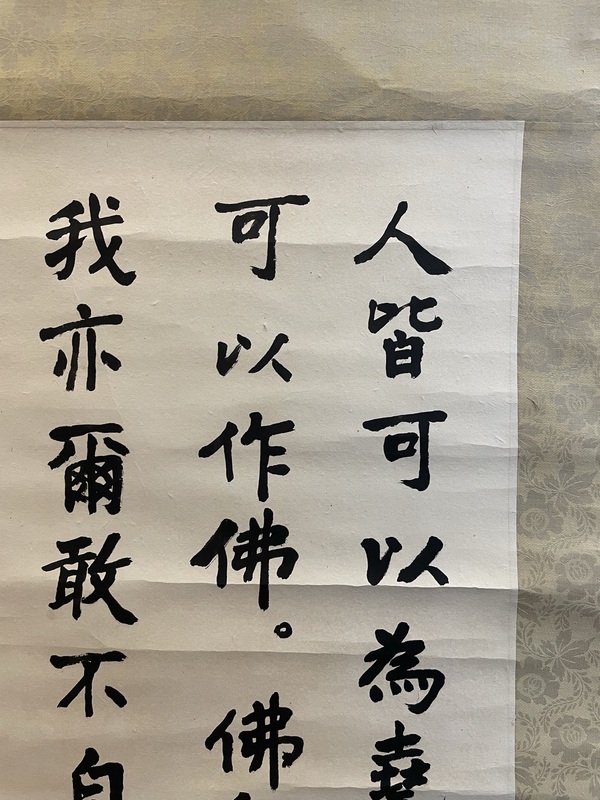 人皆可以為堯
可以作佛。佛
我亦爾敢不自